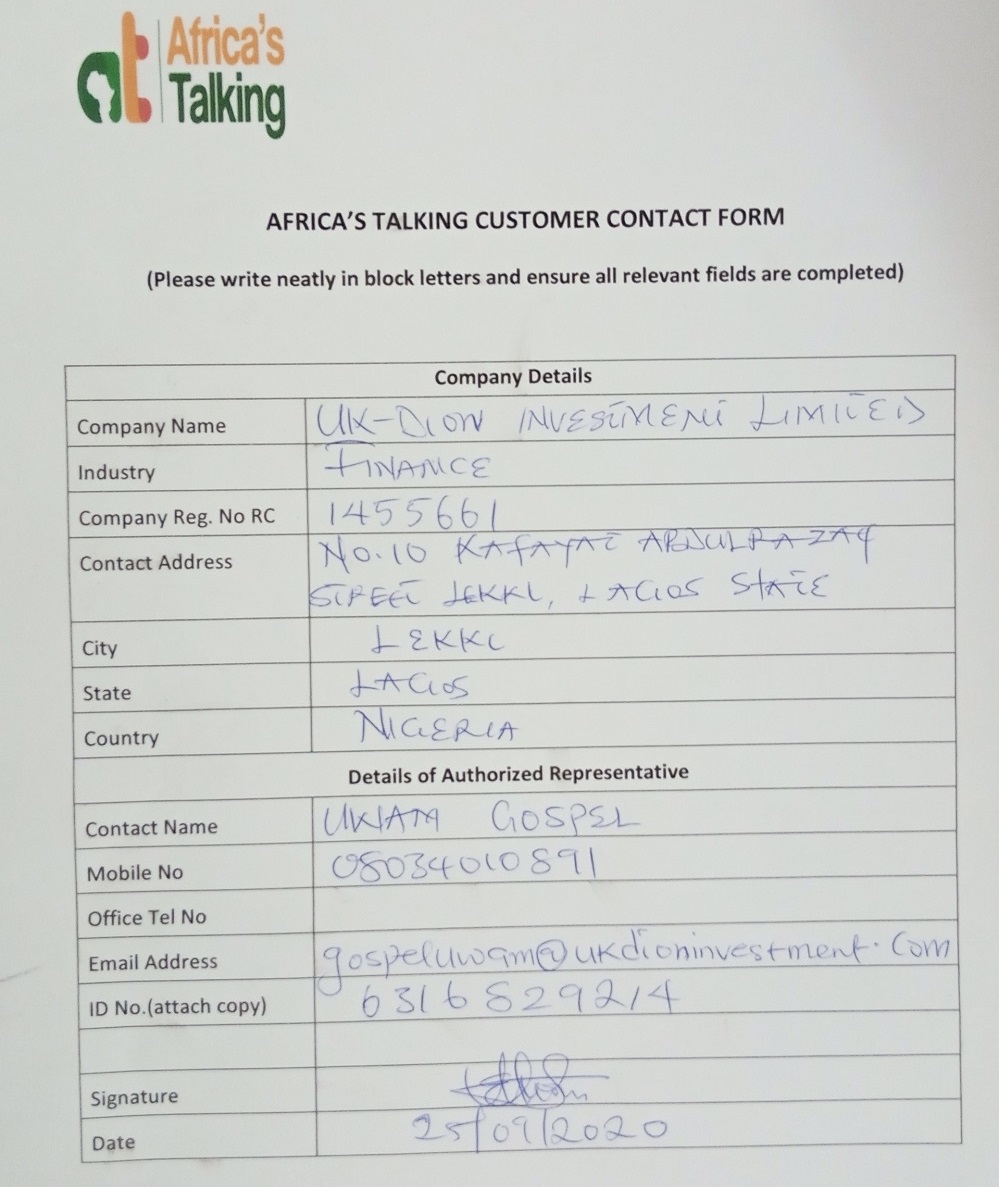 at Africa's
Talking
AFRICA'S TALKING CUSTOMER CONTACT FORM
(Please write neatly in block letters and ensure all relevant fields are completed)
Company Details
Company Name UK-DION INVESTMENT LIMITED
Industry FINANCE
Company Reg. No RC 1455661
Contact Address No. 10 KAFAYAT ABDULRAZAQ
STREET LEKKI, LAGOS STATE
City LEKKI
State LAGOS
Country NIGERIA
Details of Authorized Representative
Contact Name GOSPEL
Mobile No 08034010891
Office Tel No
Email Address gospeluwam@ukdioninvestment.com
ID No.(attach copy) 6316829214
Signature
Date 25/09/2020